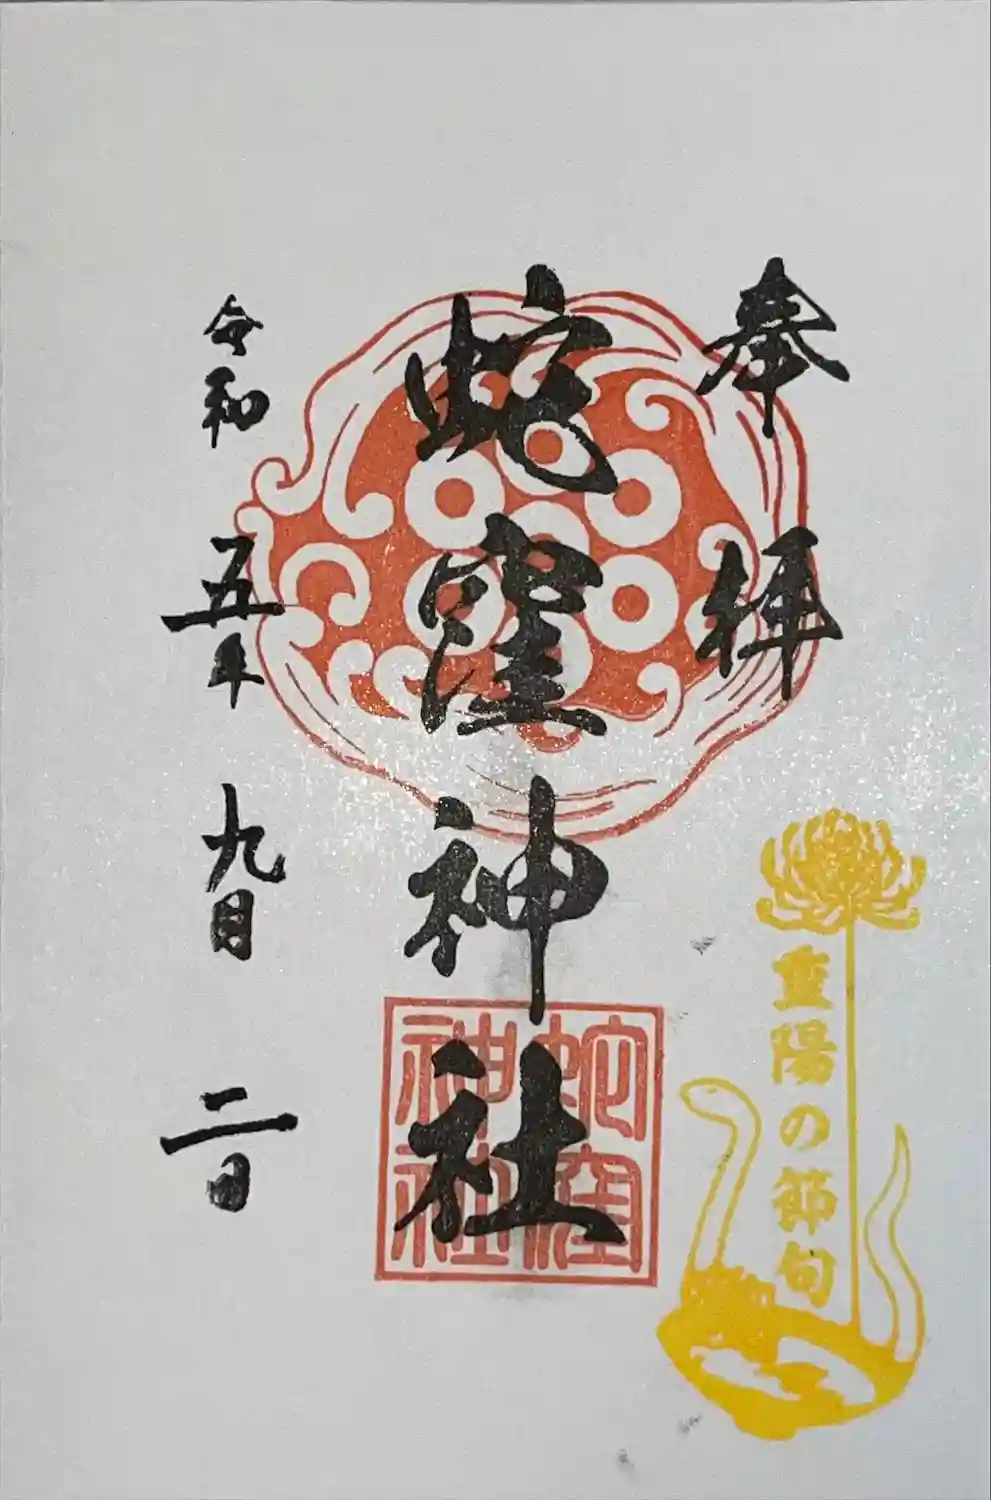 奉拝
蛇窪神社
蛇窪
神社
重陽の節句
令和五年九月二日